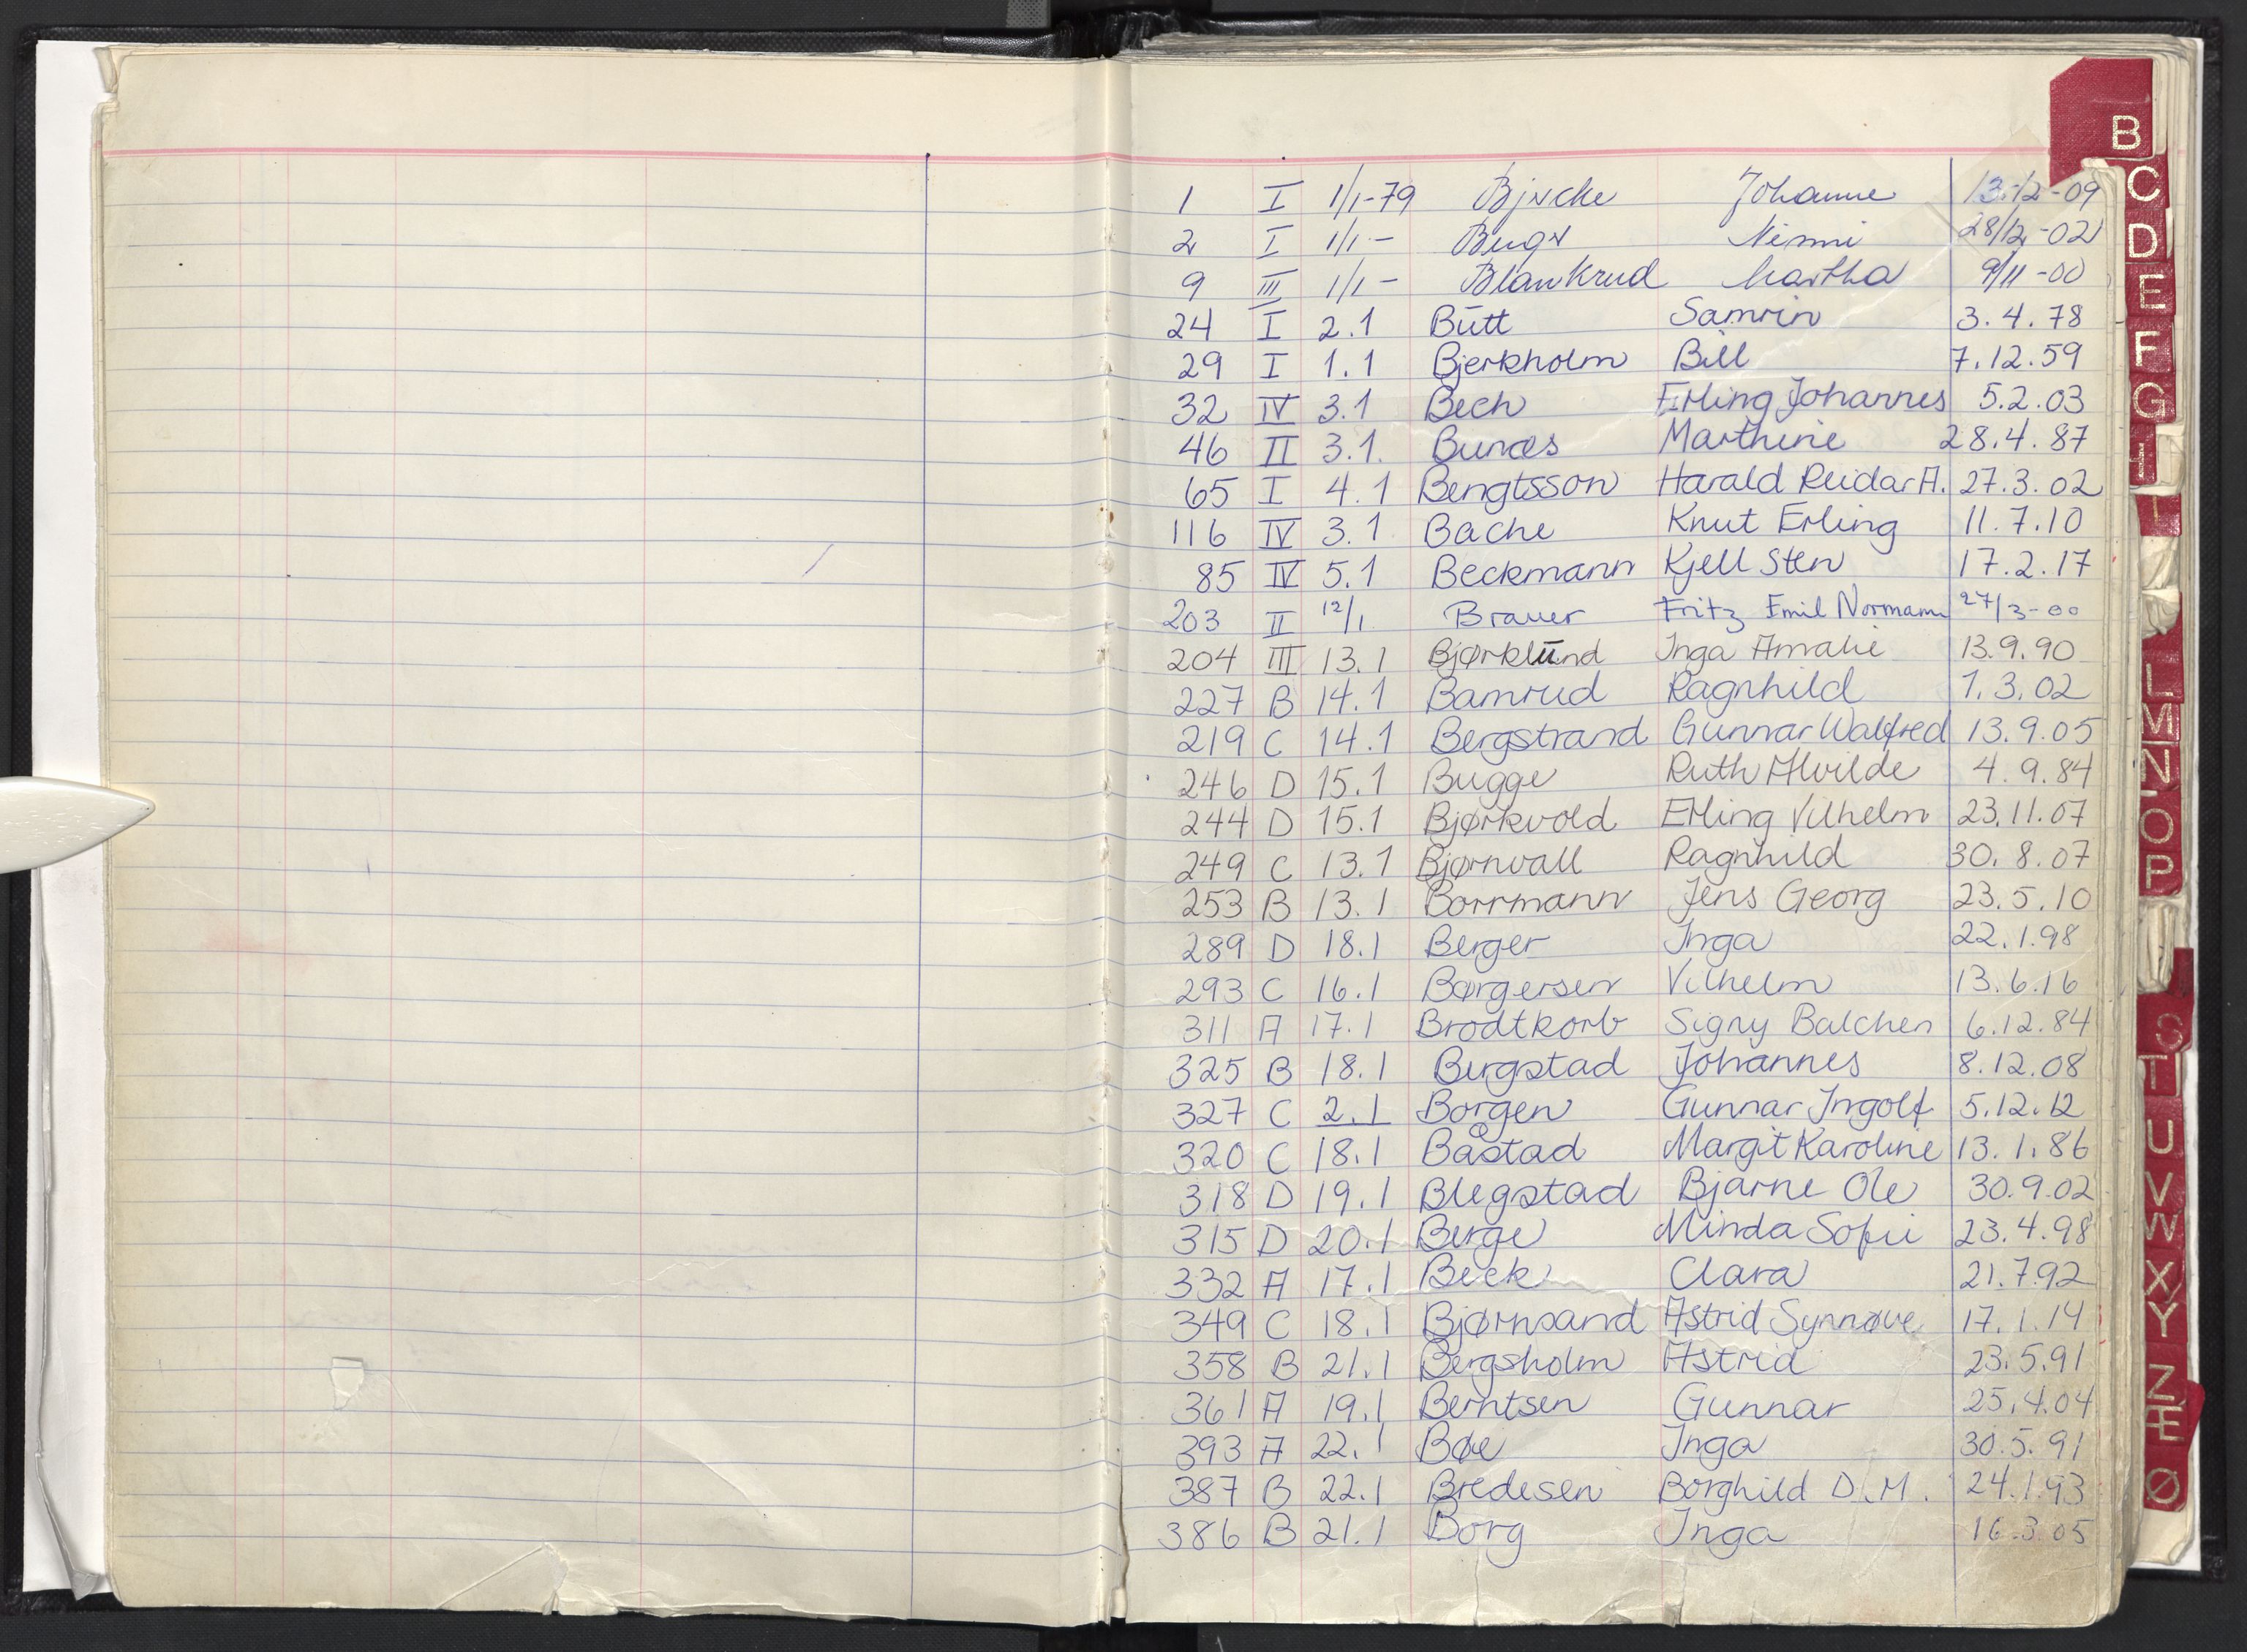 1 I 1/1-79 Bjercke Johanne 13-12-09
2 I 1/1 - Berger Nimmi 28/12-02
9 III 1/1 - Blankrud Martha 9/11-00
24 I 2.1 Butt Samrin 3.4.78
29 I 1.1 Bjerkholm Bill 7.12.59
32 IV 3.1 Bech Erling Johannes 5.2.03
46 II 3.1. Bunæs Marthine 28.4.87
65 I 4.1 Bengtsson Harald Reidar A. 27.3.02
116 IV 3.1 Bache Knut Erling 11.7.10
85 IV 5.1 Beckmann Kjell Sten 17.2.17
203 II 12/1 Brauer Fritz Emil Normann 27/3-00
204 III 13.1 Bjørklund Inga Amalie 13.9.90
227 B 14.1 Bamrud Ragnhild 1.3.02
219 C 14.1 Bergstrand Gunnar Walfred 13.9.05
246 D 15.1 Bugge Ruth Alvilde 4.9.84
244 D 15.1 Bjørkvold Erling Vilhelm 23.11.07
249 C 13.1 Bjørnvall Ragnhild 30.8.07
253 B 13.1 Borrmann Jens Georg 23.5.10
289 D 18.1 Berger Inga 22.1.98
293 C 16.1 Børgersen Vilhelm 13.6.16
311 A 17.1 Brodtkorb Signy Balchen 6.12.84
325 B 18.1 Bergstad Johannes 8.12.08
327 C 2.1 Borgen Gunnar Ingolf 5.12.12
320 C 18.1 Båstad Margit Karoline 13.1.86
318 D 19.1 Blegstad Bjarne Ole 30.9.02
315 D 20.1 Berge Minda Sofie 23.4.98
332 A 17.1 Beck Clara 21.7.92
349 C 18.1 Bjørnsand Astrid Synnøve 17.1.14
358 B 21.1 Bergsholm Astrid 23.5.91
361 A 19.1 Berntsen Gunnar 25.4.04
393 A 22.1 Bøe Inga 30.5.91
387 B 22.1 Bredesen Borghild D.M. 24.1.93
386 B 21.1 Borg Inga 16.3.05
B
C
D
E
F
G
H
I
L
M
N
O
P
S
T
U
V
W
X
Y
Z
Æ
Ø